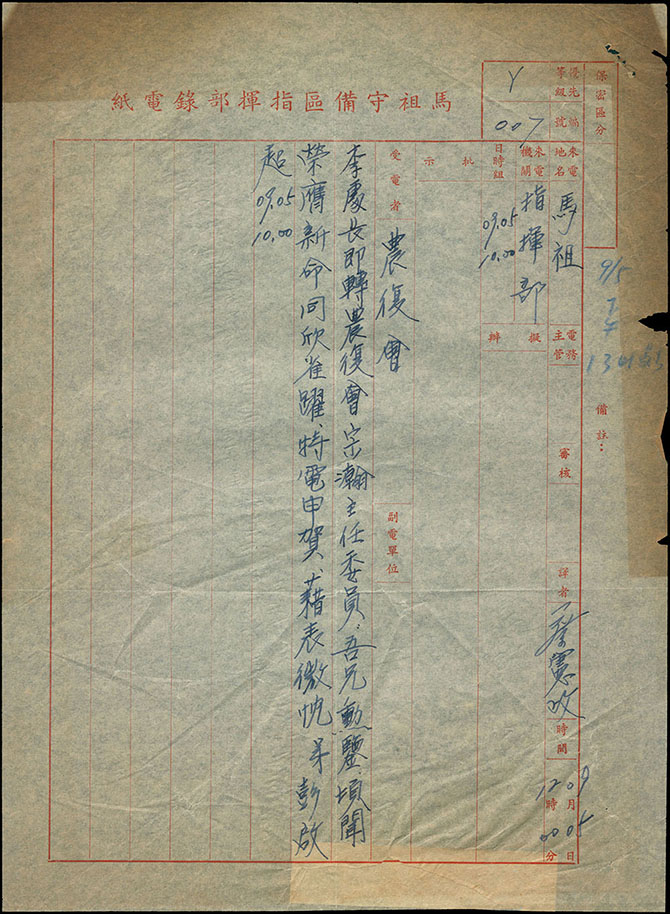 馬祖守備區指揮部錄電紙
保密區分
優先等級
Y
編號
007
來電地名
馬祖
來電機關
指揮部
日時組
09.05
10.00
電務主管
擬辦
批示
審核
譯者
蔡憲改
時間
09月05日
12時00分
備註：
9/5
受電者
農復會
副電單位
李處長即轉農復會宗瀚主任委員：吾兄勳鑒、頃聞
榮膺新命同欣雀躍、特電申賀、藉表微忱 弟彭啟
超 09.05
10.00